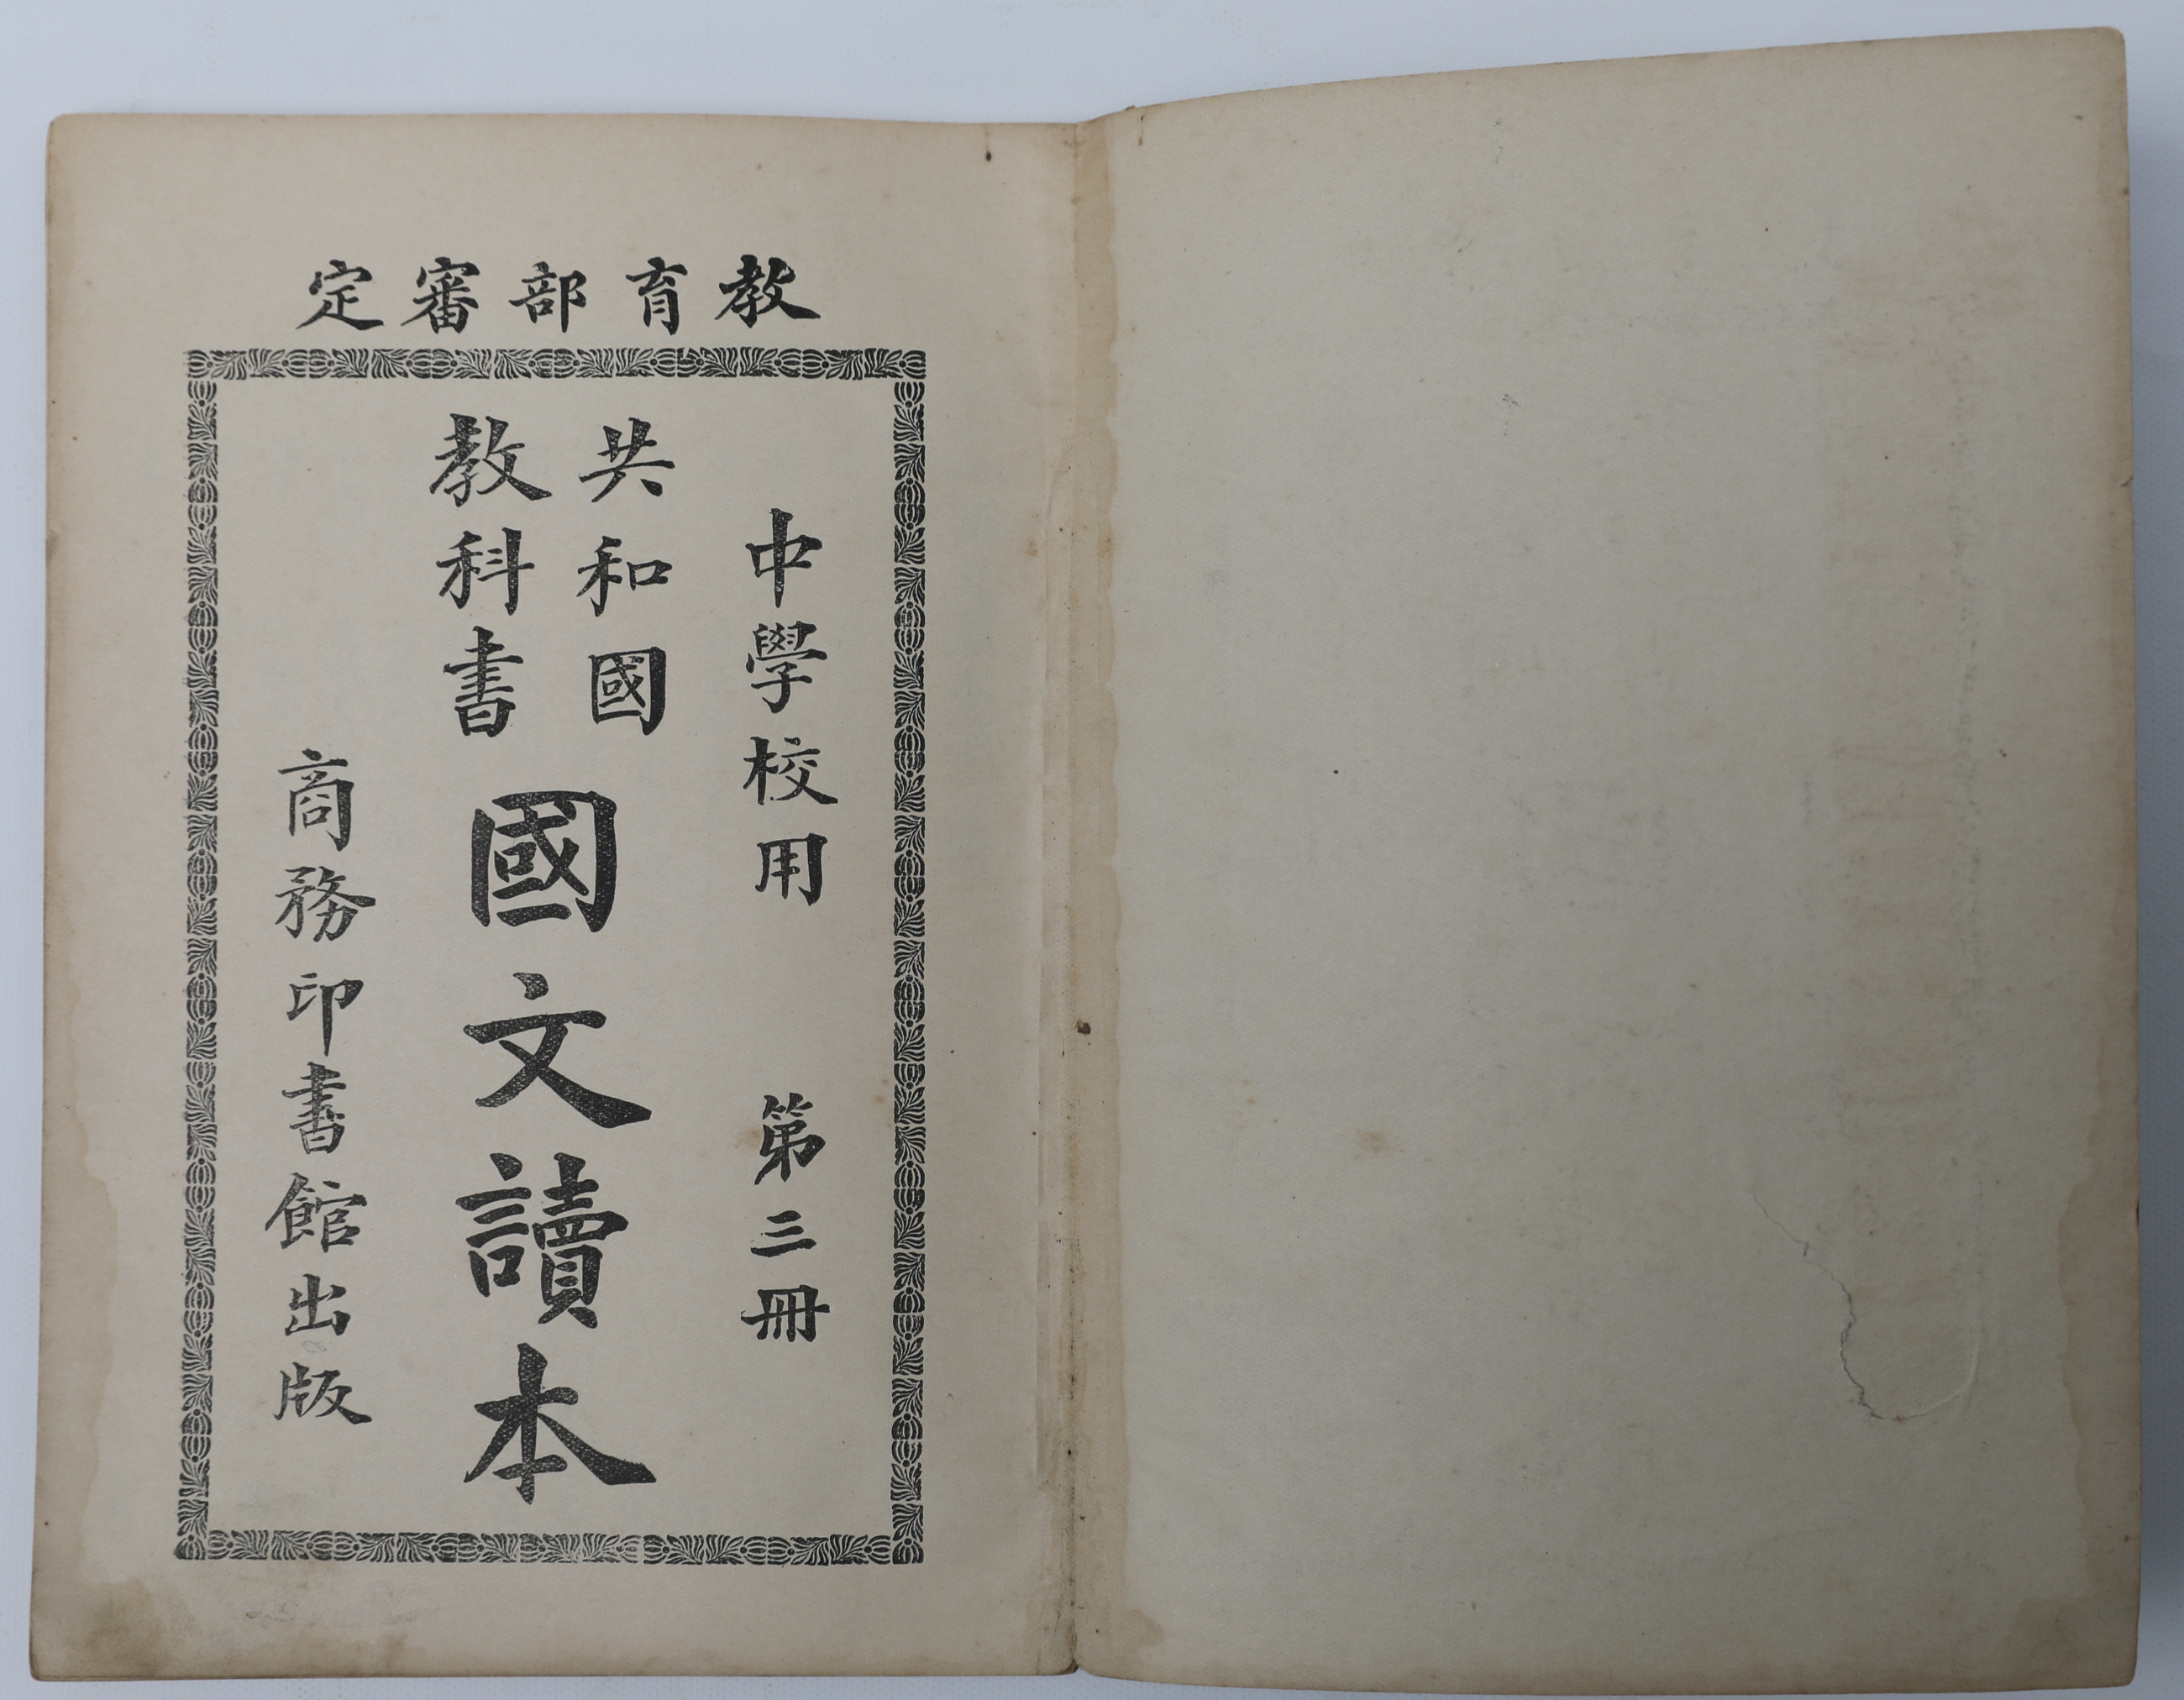 教育部審定
中學校用 第三冊
共和國
教科書
國文讀本
商務印書館出版